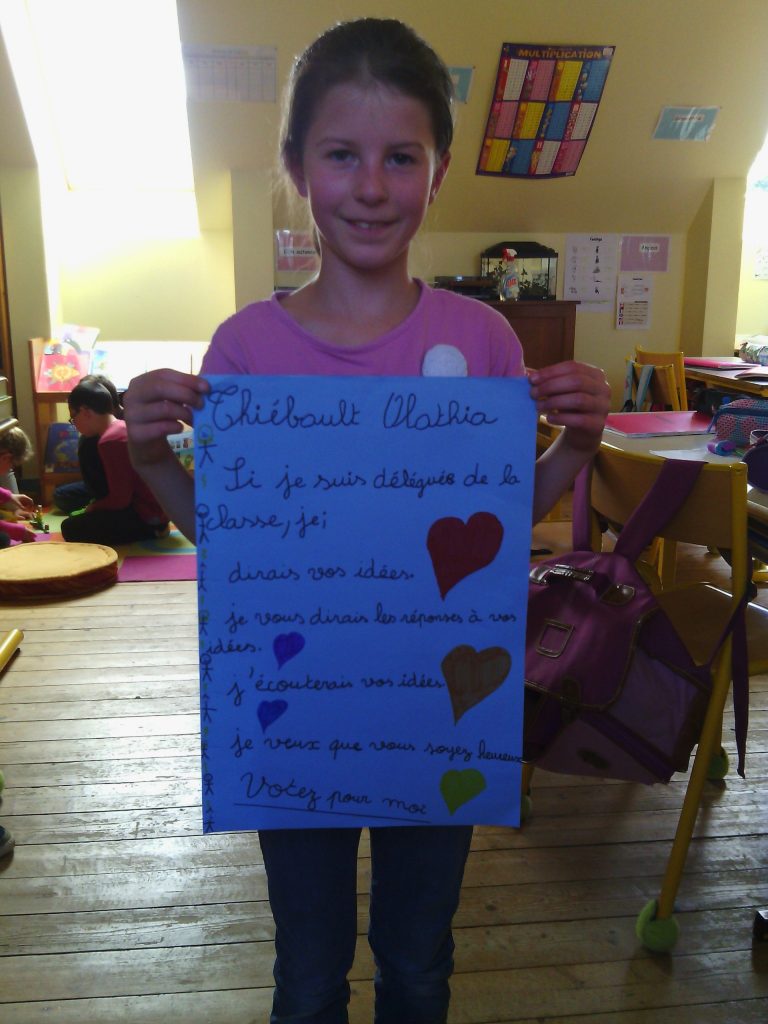 MULTIPLICATION
Thiébault Olathia
Si je suis déléguée de la
classe, je;
dirais vos idées.
je vous dirais les réponses à vos
idées.
j'écouterais vos idées
je veux que vous soyez heureux
Votez pour moi